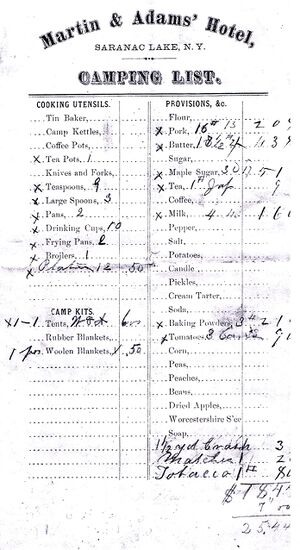 Martin & Adams' Hotel,
SARANAC LAKE, N.Y.
CAMPING LIST.
COOKING UTENSILS.
Tin Baker,
Camp Kettles,
Coffee Pots,
x Tea Pots, 1
Knives and Forks,
x Teaspoons, 9
x Large Spoons, 3
x Pans, 2
x Drinking Cups, 10
x Frying Pans, 2
x Broilers, 1
x Plates 12 50
CAMP KITS.
x1-1 Tents, 6
Rubber Blankets,
1 Woolen Blankets, x .50
PROVISIONS, &c.
Flour,
x Pork, 16 #
x Butter,
Sugar,
x Maple Sugar, 3
x Tea, 1# Jap
Coffee,
x Milk, 4
Pepper,
Salt,
Potatoes,
Candle
Pickles,
Cream Tarter,
Soda,
x Baking Powders, 3
x Tomatoes, 3 Cans
Corn,
Peas,
Peaches,
Beans,
Dried Apples,
Worcestershire S'ce
Soap,
Matches 1
Tobacco 1#
$ 18.4
25.44